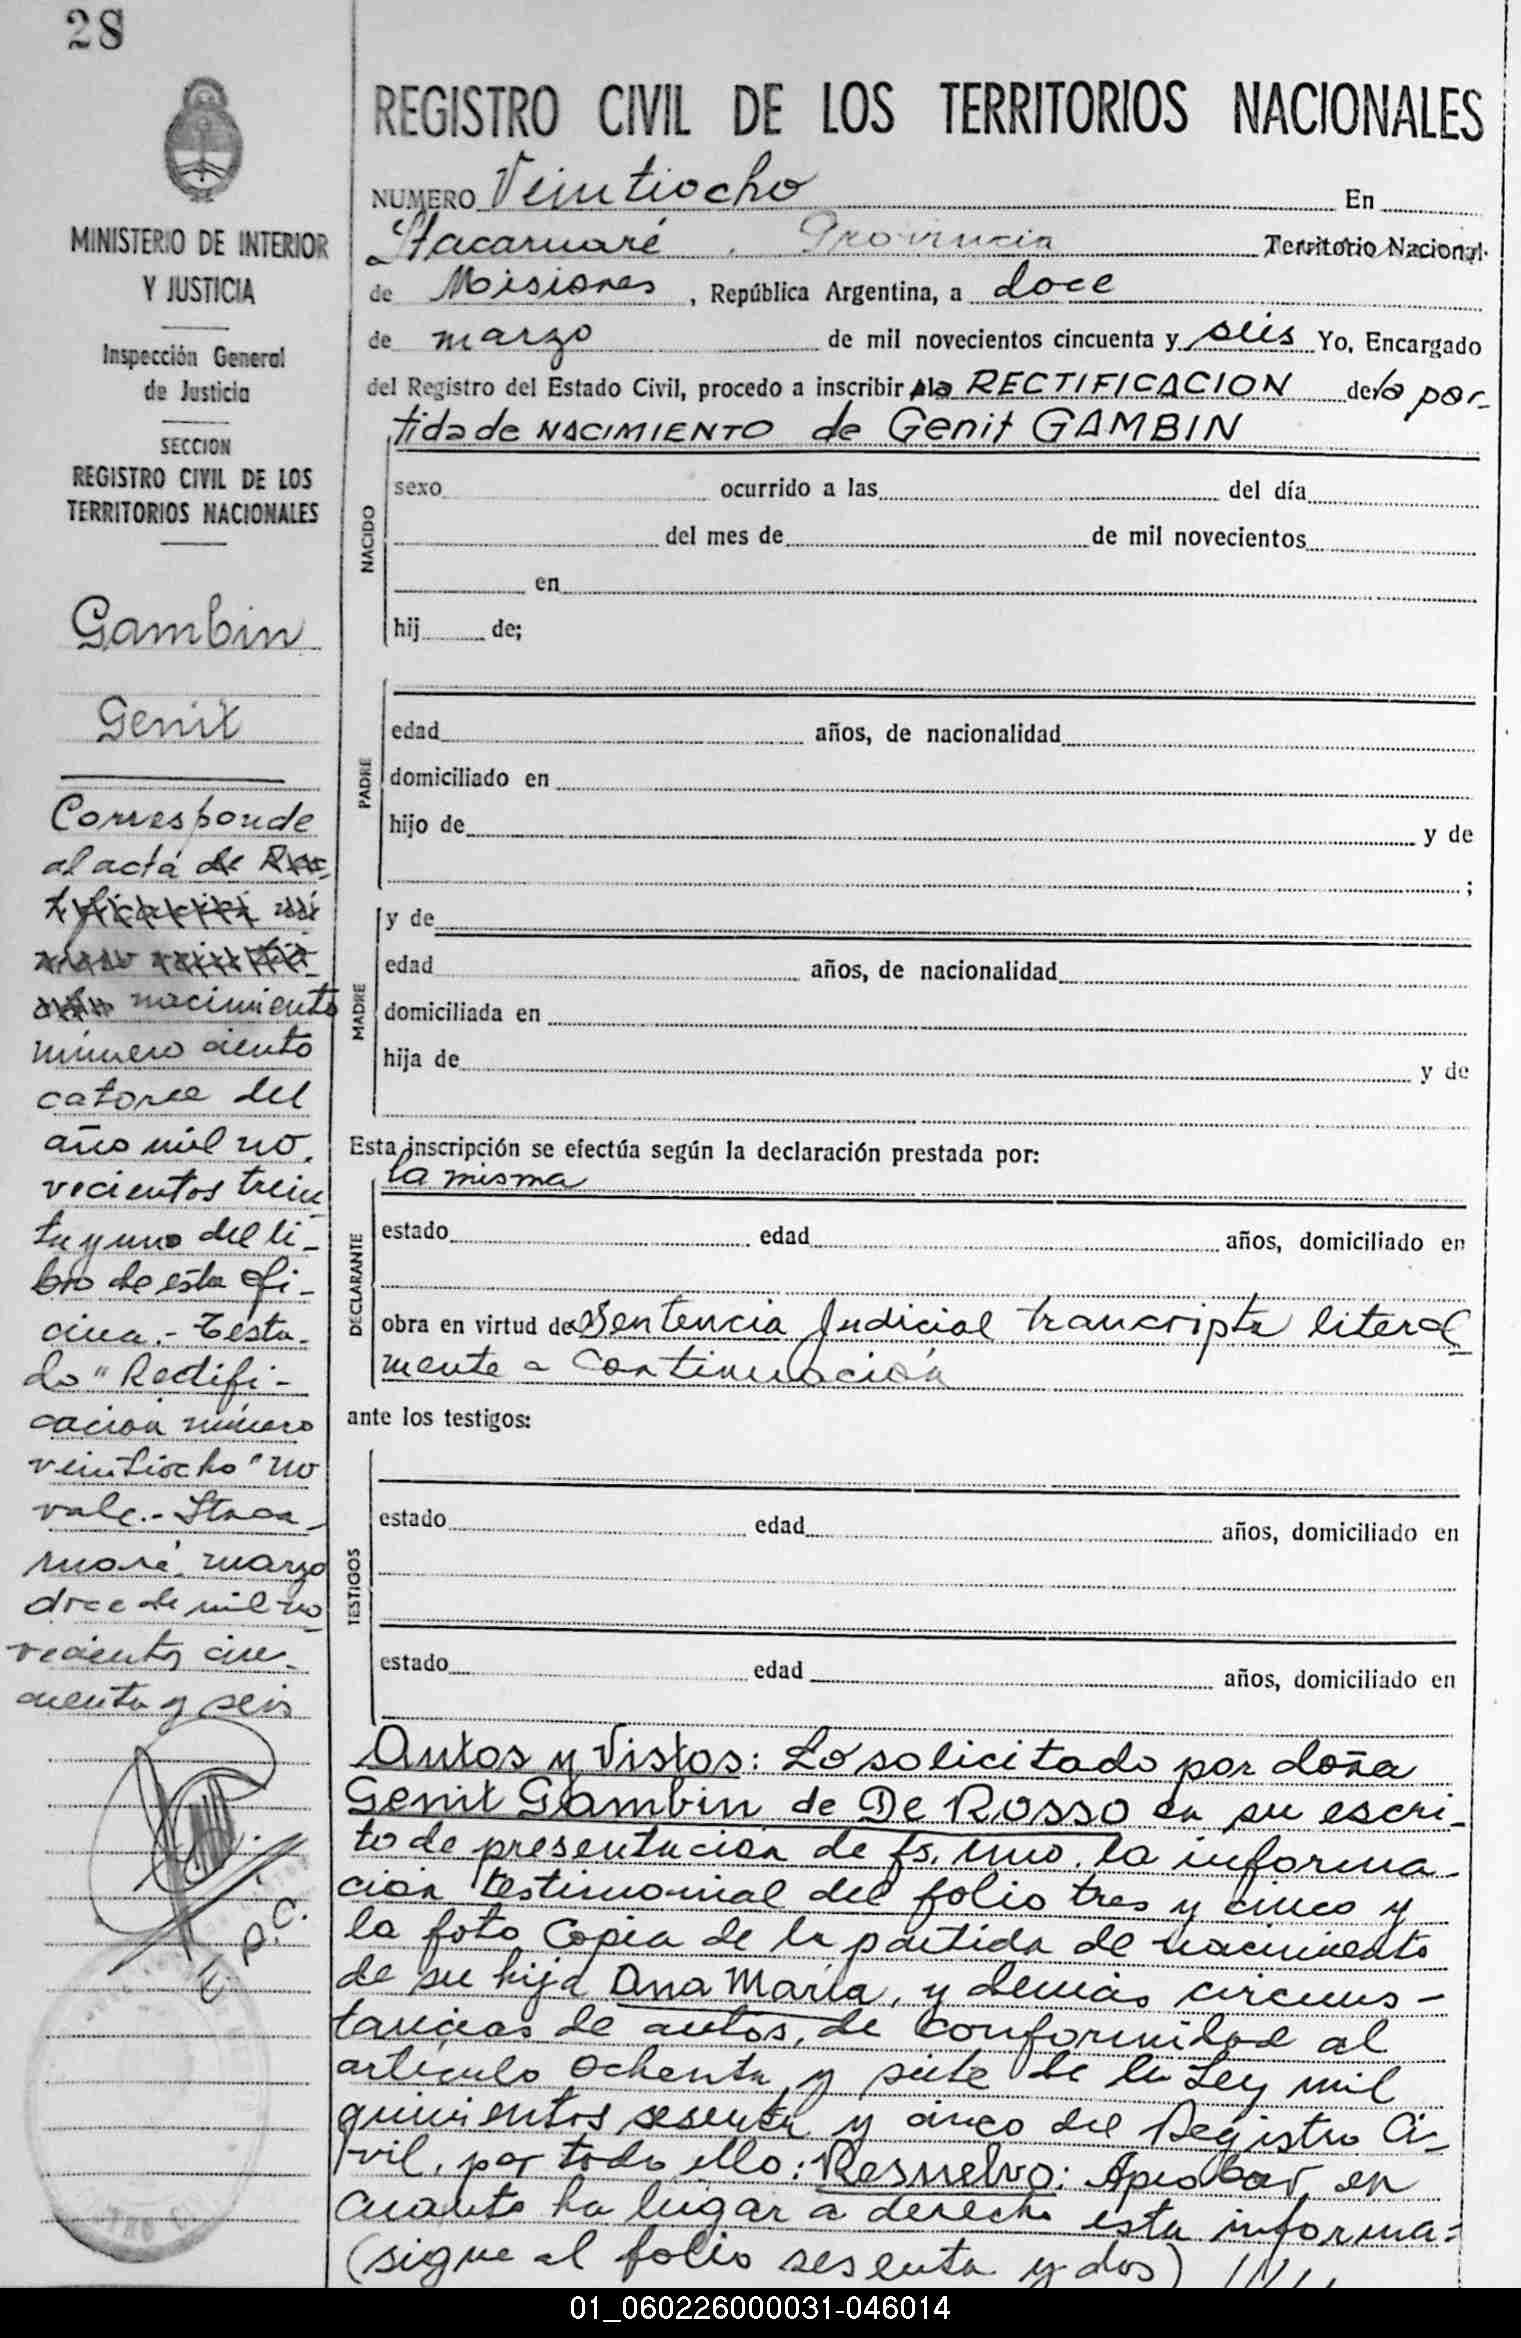 28
MINISTERIO DE INTERIOR
Y JUSTICIA
Inspección General
de Justicia
SECCION
REGISTRO CIVIL DE LOS
TERRITORIOS NACIONALES
Gambin
Genit
Corresponde
al acta de Rec-
tificación nú
mero veintio
cho nacimiento
número ciento
catorce del
año mil no.
vecientos trein
ta y uno del li-
bro de esta Ofi-
cina.- Testa-
do "Rectifi-
cación número
veintiocho" no
vale.- Itaca-
ruaré, marzo
doce de mil no
vecientos cin-
cuenta y seis
REGISTRO CIVIL DE LOS TERRITORIOS NACIONALES
NUMERO Veintiocho En
Itacaruaré, Provincia Territorio Nacional
de Misiones, República Argentina, a doce
de marzo de mil novecientos cincuenta y seis Yo, Encargado
del Registro del Estado Civil, procedo a inscribir la RECTIFICACION de la par-
tida de NACIMIENTO de Genit GAMBIN
NACIDO
sexo ocurrido a las del día
del mes de de mil novecientos
en
hij de;
PADRE
edad años, de nacionalidad
domiciliado en
hijo de y de
;
MADRE
y de
edad años, de nacionalidad
domiciliada en
hija de y de
Esta inscripción se efectúa según la declaración prestada por:
la misma
DECLARANTE
estado edad años, domiciliado en
obra en virtud de Sentencia Judicial transcripta literal
mente a continuación
ante los testigos:
TESTIGOS
estado edad años, domiciliado en
estado edad años, domiciliado en
Autos y Vistos: Lo solicitado por doña
Genit Gambin de De Rosso en su escri-
to de presentación de fs. uno, la informa-
ción testimonial del folio tres y cinco y
la foto Copia de la partida de nacimiento
de su hija Ana María, y demás circuns-
tancias de autos, de conformidad al
artículo ochenta y siete de la Ley mil
quinientos sesenta y cinco del Registro Ci-
vil, por todo ello: Resuelvo: Aprobar, en
cuanto ha lugar a derecho esta informa=
(sigue al folio sesenta y dos)
01_060226000031-046014